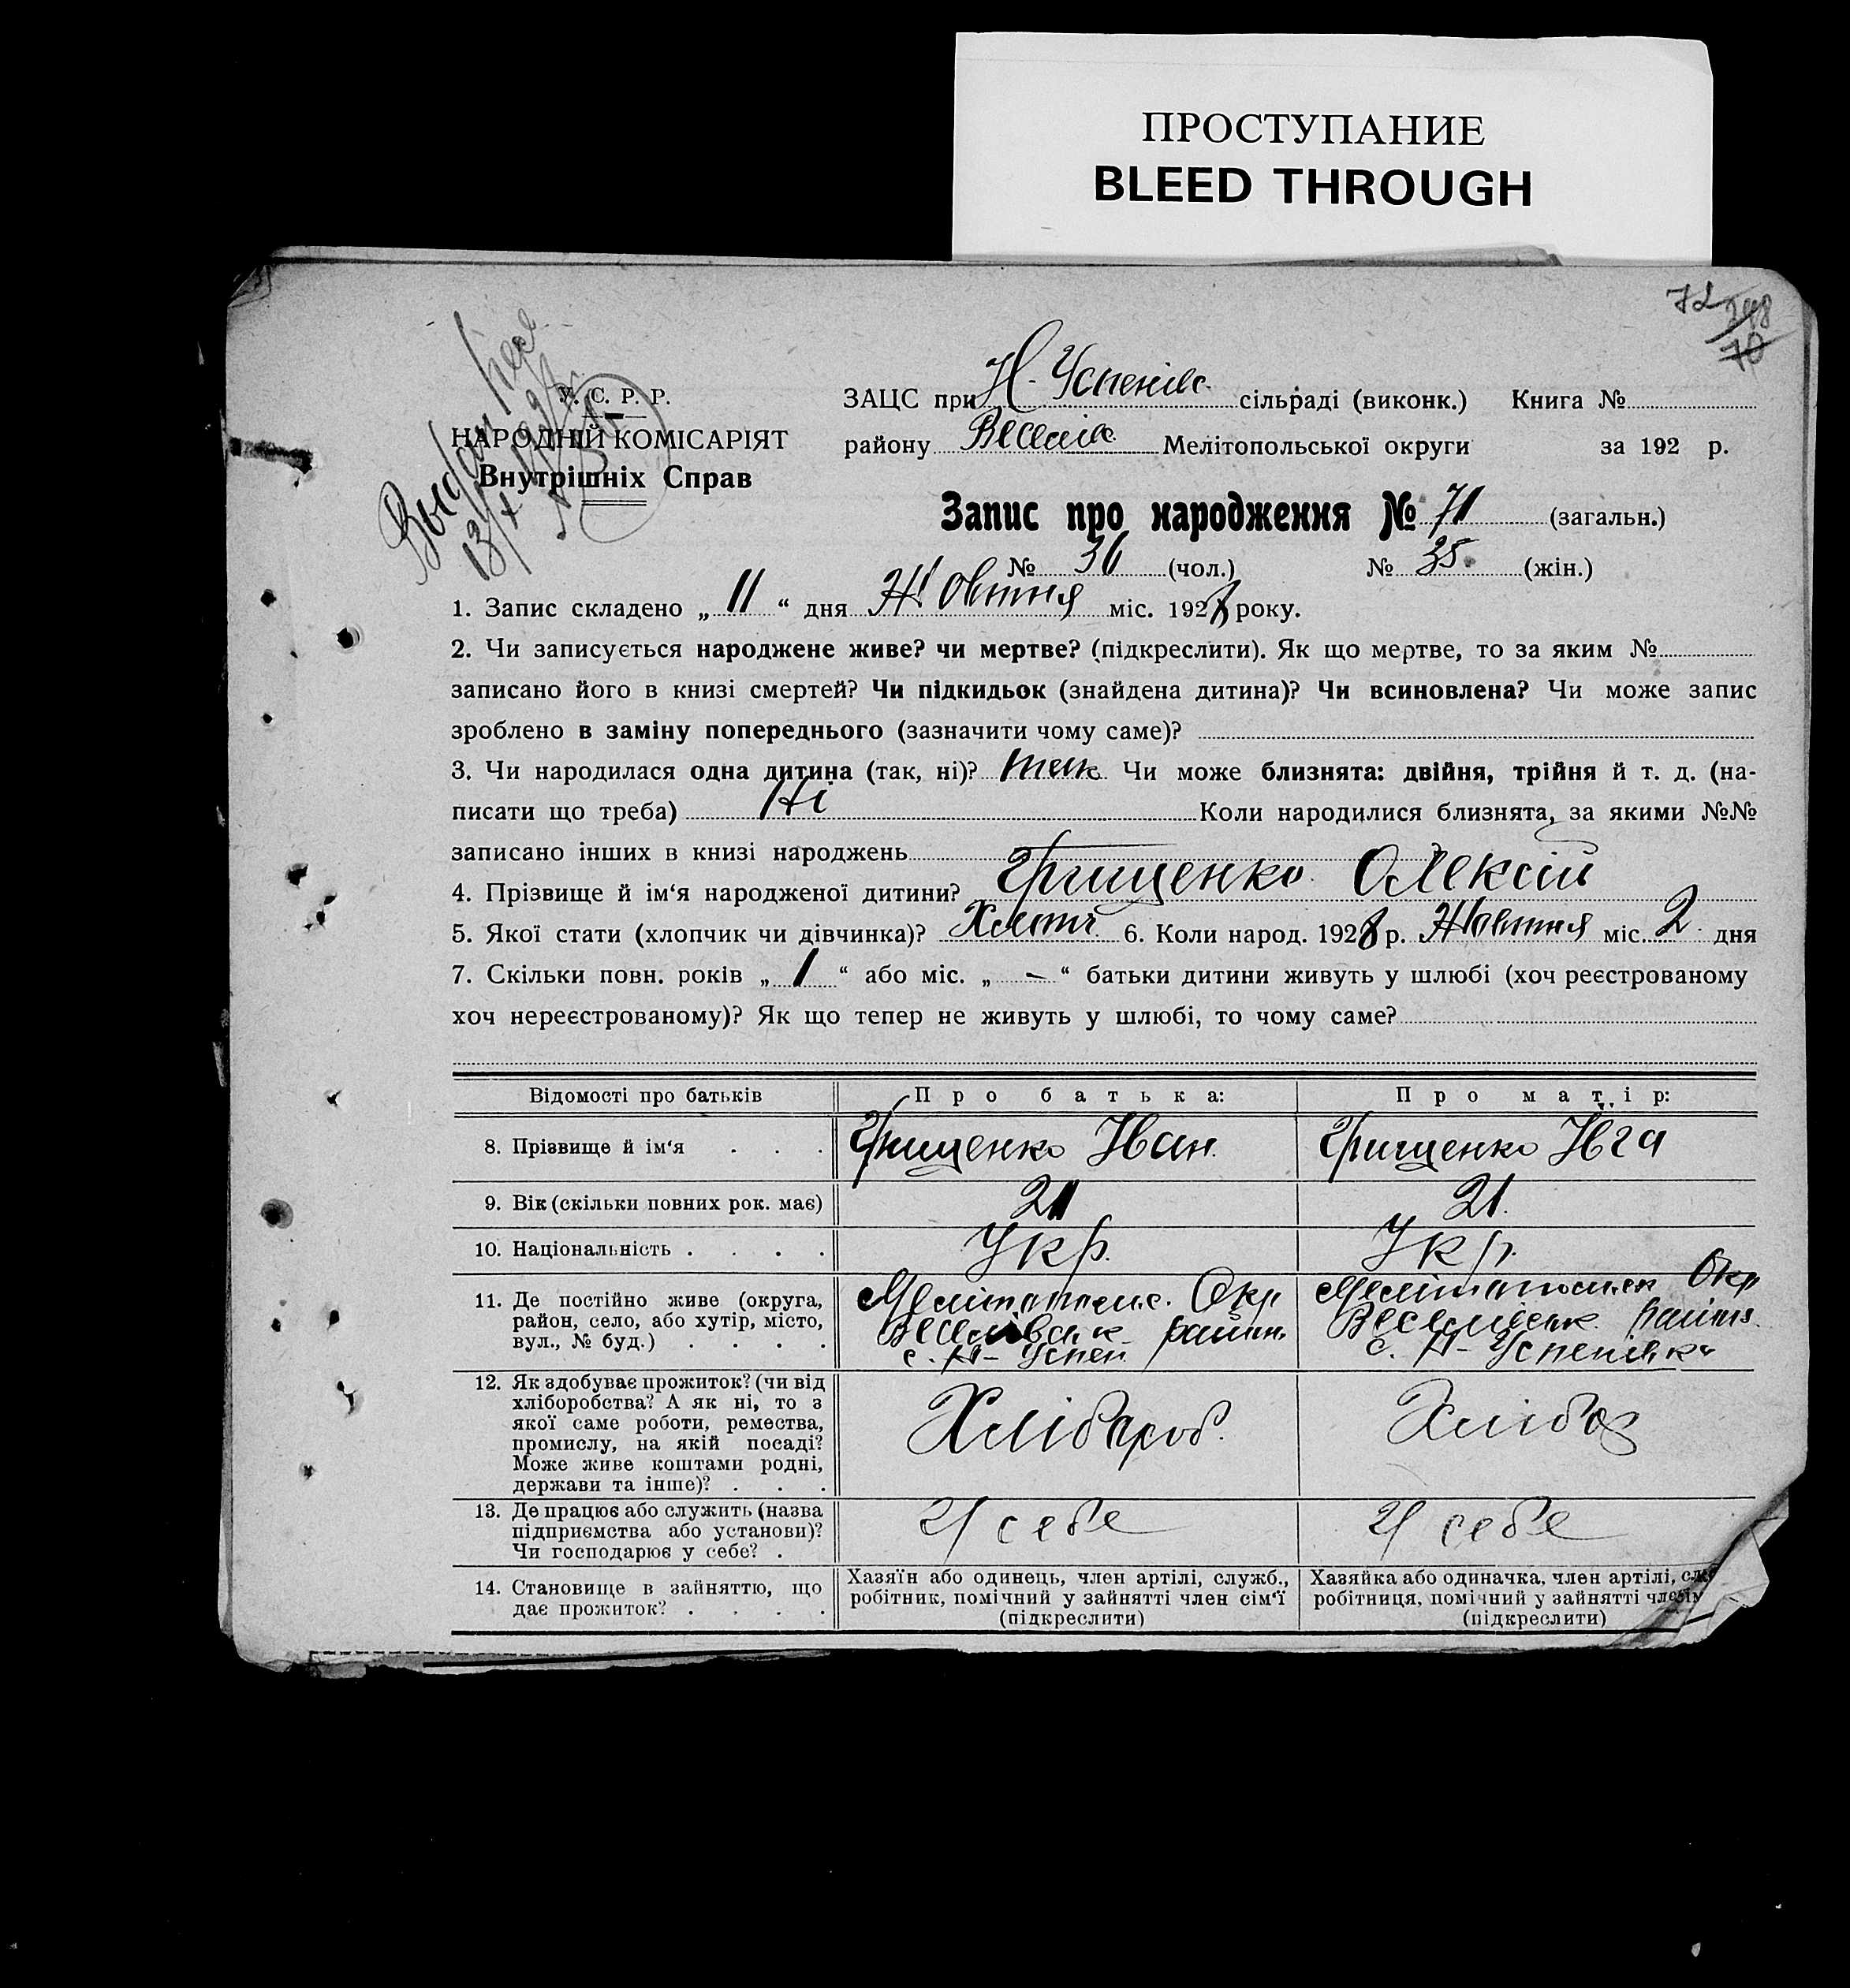 ПРОСТУПАНИЕ
BLEED THROUGH
72
298
70
Выдан
13/X
У. С. Р. Р.
НАРОДНІЙ КОМІСАРІЯТ
Внутрішніх Справ
ЗАЦС при Н-Успенівс. сільраді (виконк.) Книга №
району Веселівс. Мелітопольської округи за 192 р.
Запис про народження № 71 (загальн.)
№ 36 (чол.) № 35 (жін.)
1. Запис складено „ 11 “ дня Жовтня міс. 1928 року.
2. Чи записується народжене живе? чи мертве? (підкреслити). Як що мертве, то за яким №
записано його в книзі смертей? Чи підкидьок (знайдена дитина)? Чи всиновлена? Чи може запис
зроблено в заміну попереднього (зазначити чому саме)?
3. Чи народилася одна дитина (так, ні)? так Чи може близнята: двійня, трійня й т. д. (на-
писати що треба) Ні Коли народилися близнята, за якими №№
записано інших в книзі народжень
4. Прізвище й ім‘я народженої дитини? Грищенко Олексій
5. Якої стати (хлопчик чи дівчинка)? Хлопч. 6. Коли народ. 1928 р. Жовтня міс. 2 дня
7. Скільки повн. років „ 1 “ або міс. „ — “ батьки дитини живуть у шлюбі (хоч реєстрованому
хоч нереєстрованому)? Як що тепер не живуть у шлюбі, то чому саме?
Відомості про батьків Про батька: Про матір:
8. Прізвище й ім‘я . . . Грищенко Іван. Грищенко Івга
9. Вік (скільки повних рок. має) 21 21.
10. Національність . . . . Укр. Укр.
11. Де постійно живе (округа,
район, село, або хутір, місто,
вул., № буд.) . . . .
Мелітопольс. Окр
Веселівськ район
с. Н-Успен
Мелітопольск Окр
Веселівськ район.
с. Н-Успенівка
12. Як здобуває прожиток? (чи від
хліборобства? А як ні, то з
якої саме роботи, ремества,
промислу, на якій посаді?
Може живе коштами родні,
держави та інше)? . . .
Хлібароб.
Хлібоз
13. Де працює або служить (назва
підприємства або установи)?
Чи господарює у себе? .
У себе
У себе
14. Становище в зайняттю, що
дає прожиток? . . . .
Хазяїн або одинець, член артілі, служб.,
робітник, помічний у зайнятті член сім‘ї
(підкреслити)
Хазяйка або одиначка, член артілі,
робітниця, помічний у зайнятті
(підкреслити)